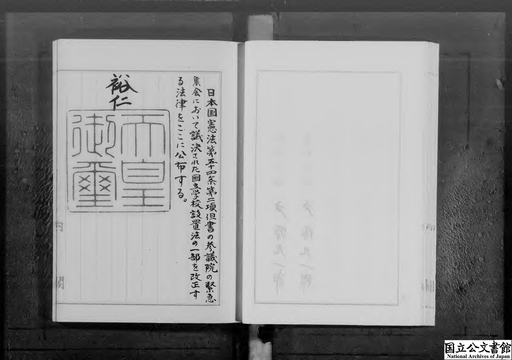 日本国憲法第五十四条第二項但書の参議院の緊急
集会において議決された国立学校設置法の一部を改正す
る法律をここに公布する。
裕仁
天皇
御璽
国立公文書館
National Archives of Japan